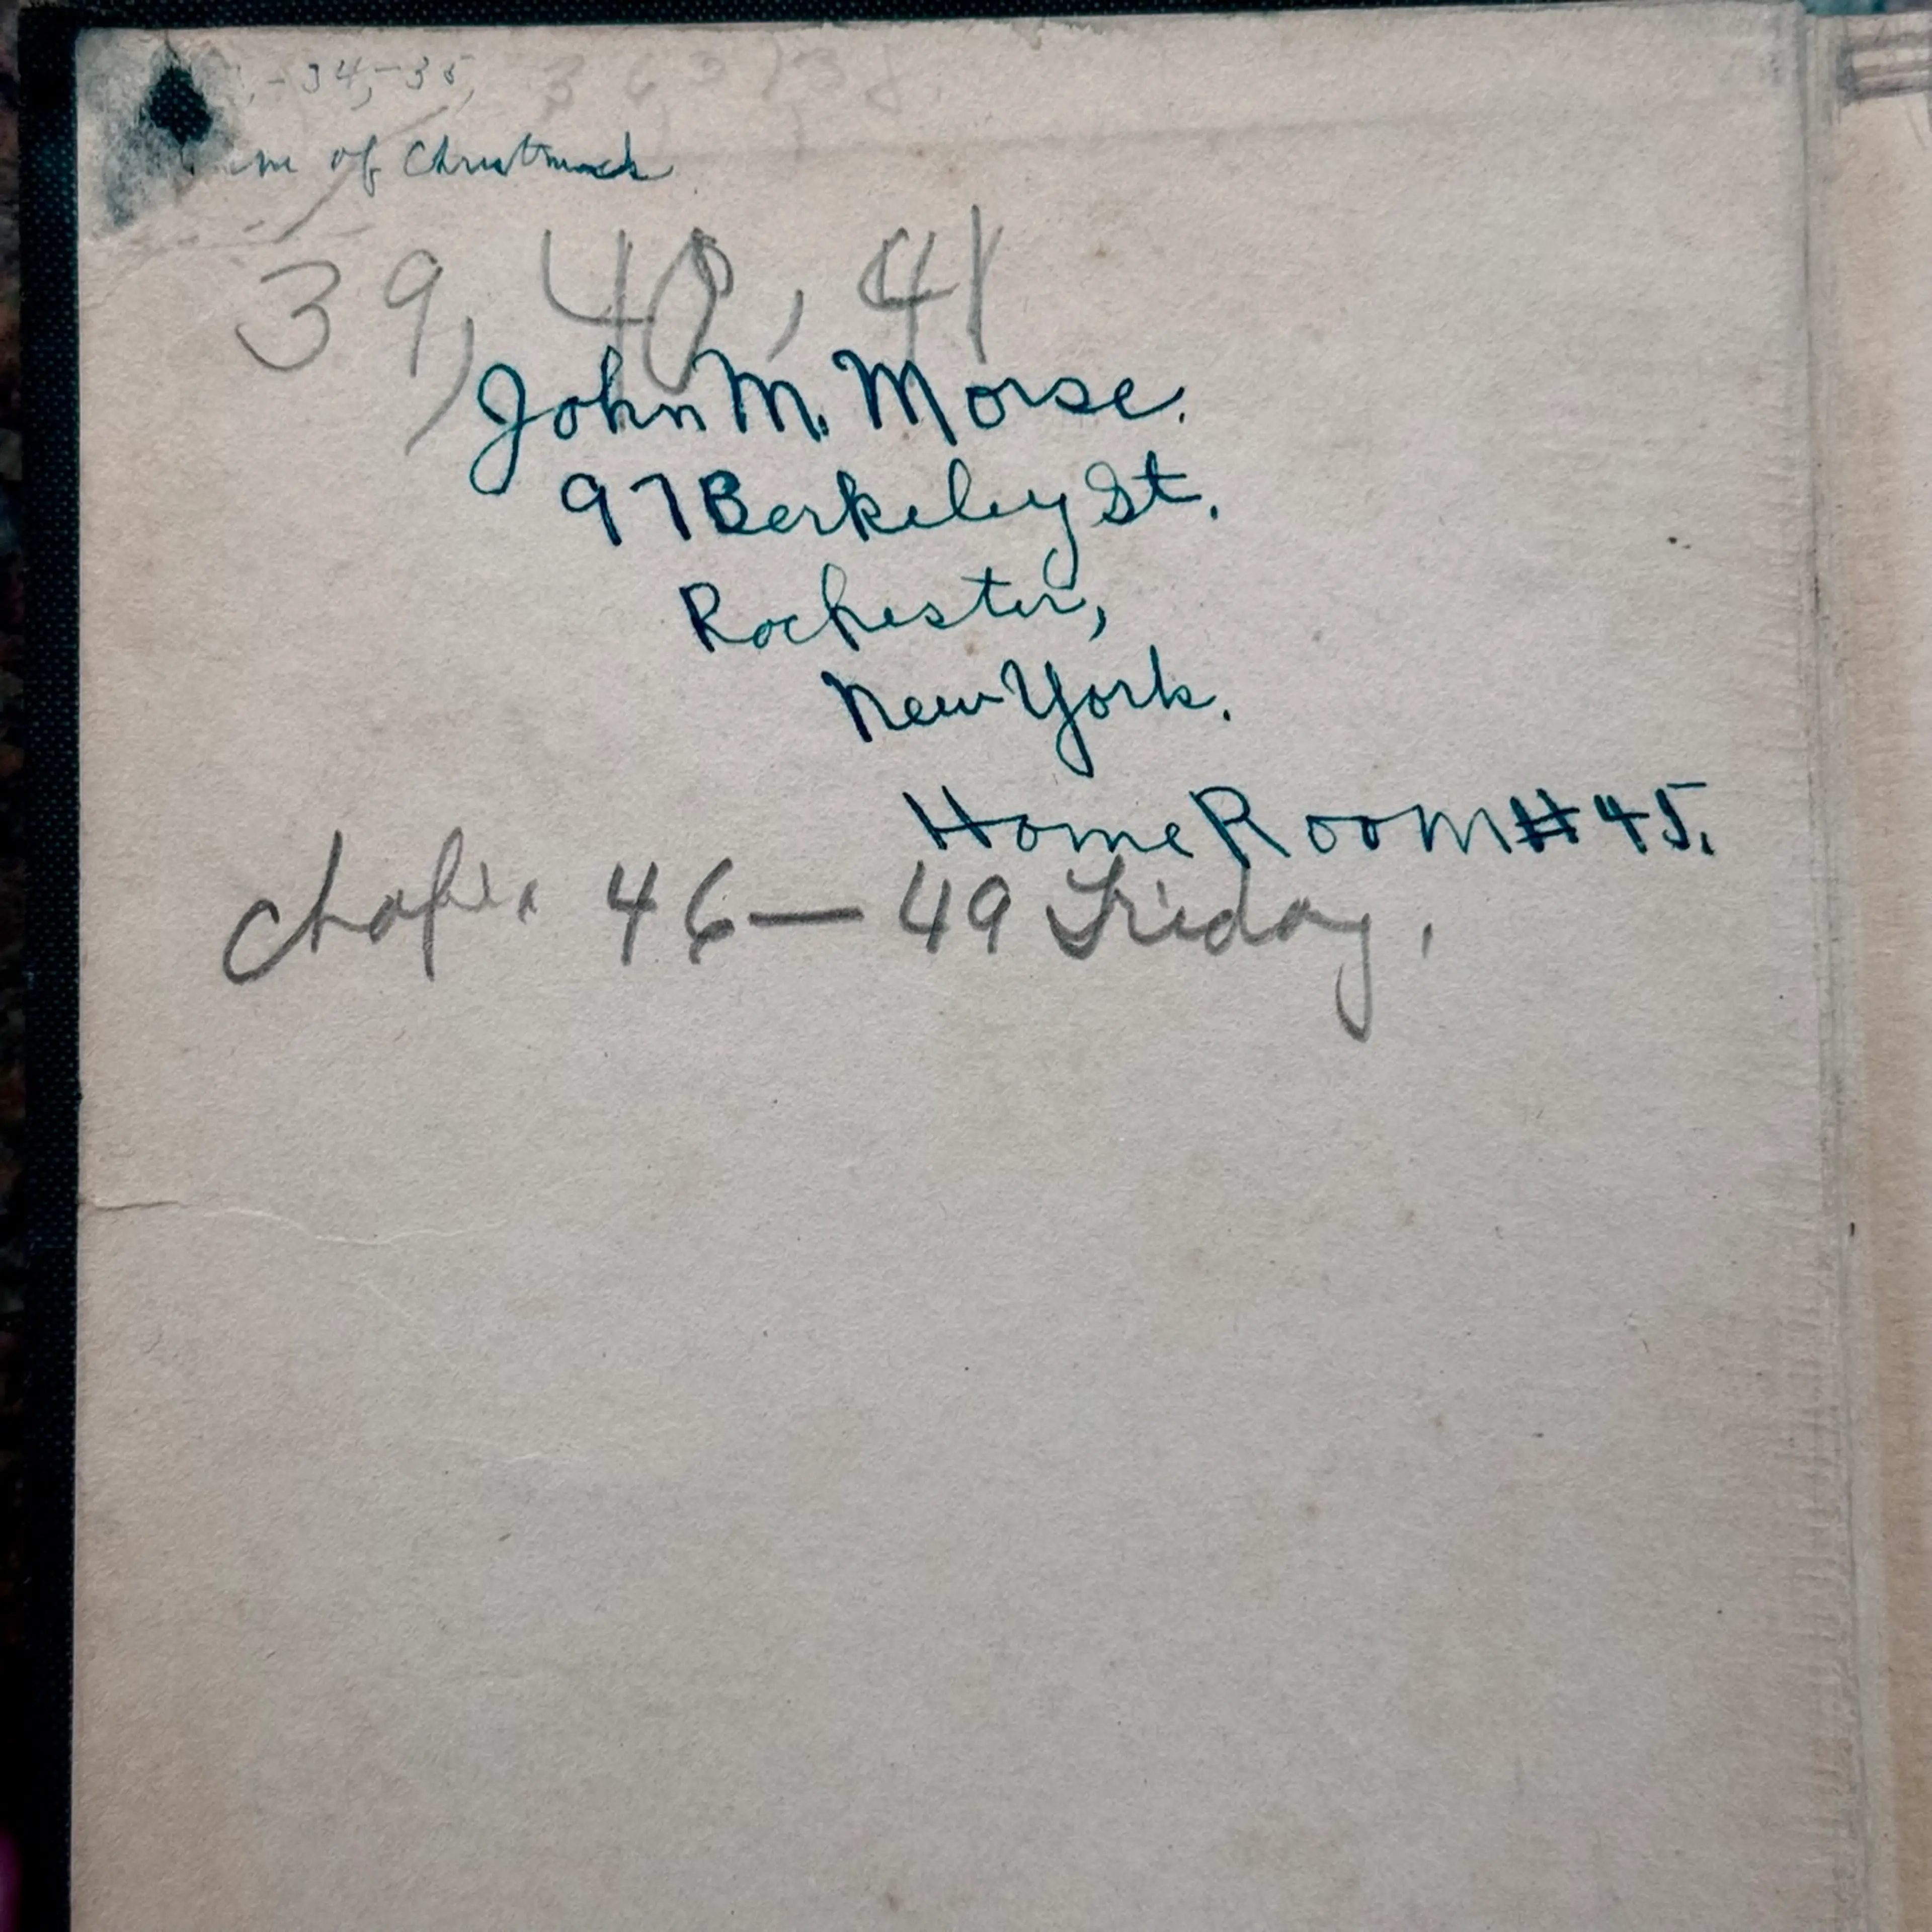 -34,-35,
of Christmas
39, 40, 41
John M. Morse.
97 Berkeley St.
Rochester,
New York.
Home Room #45.
Chap. 46—49 Friday.